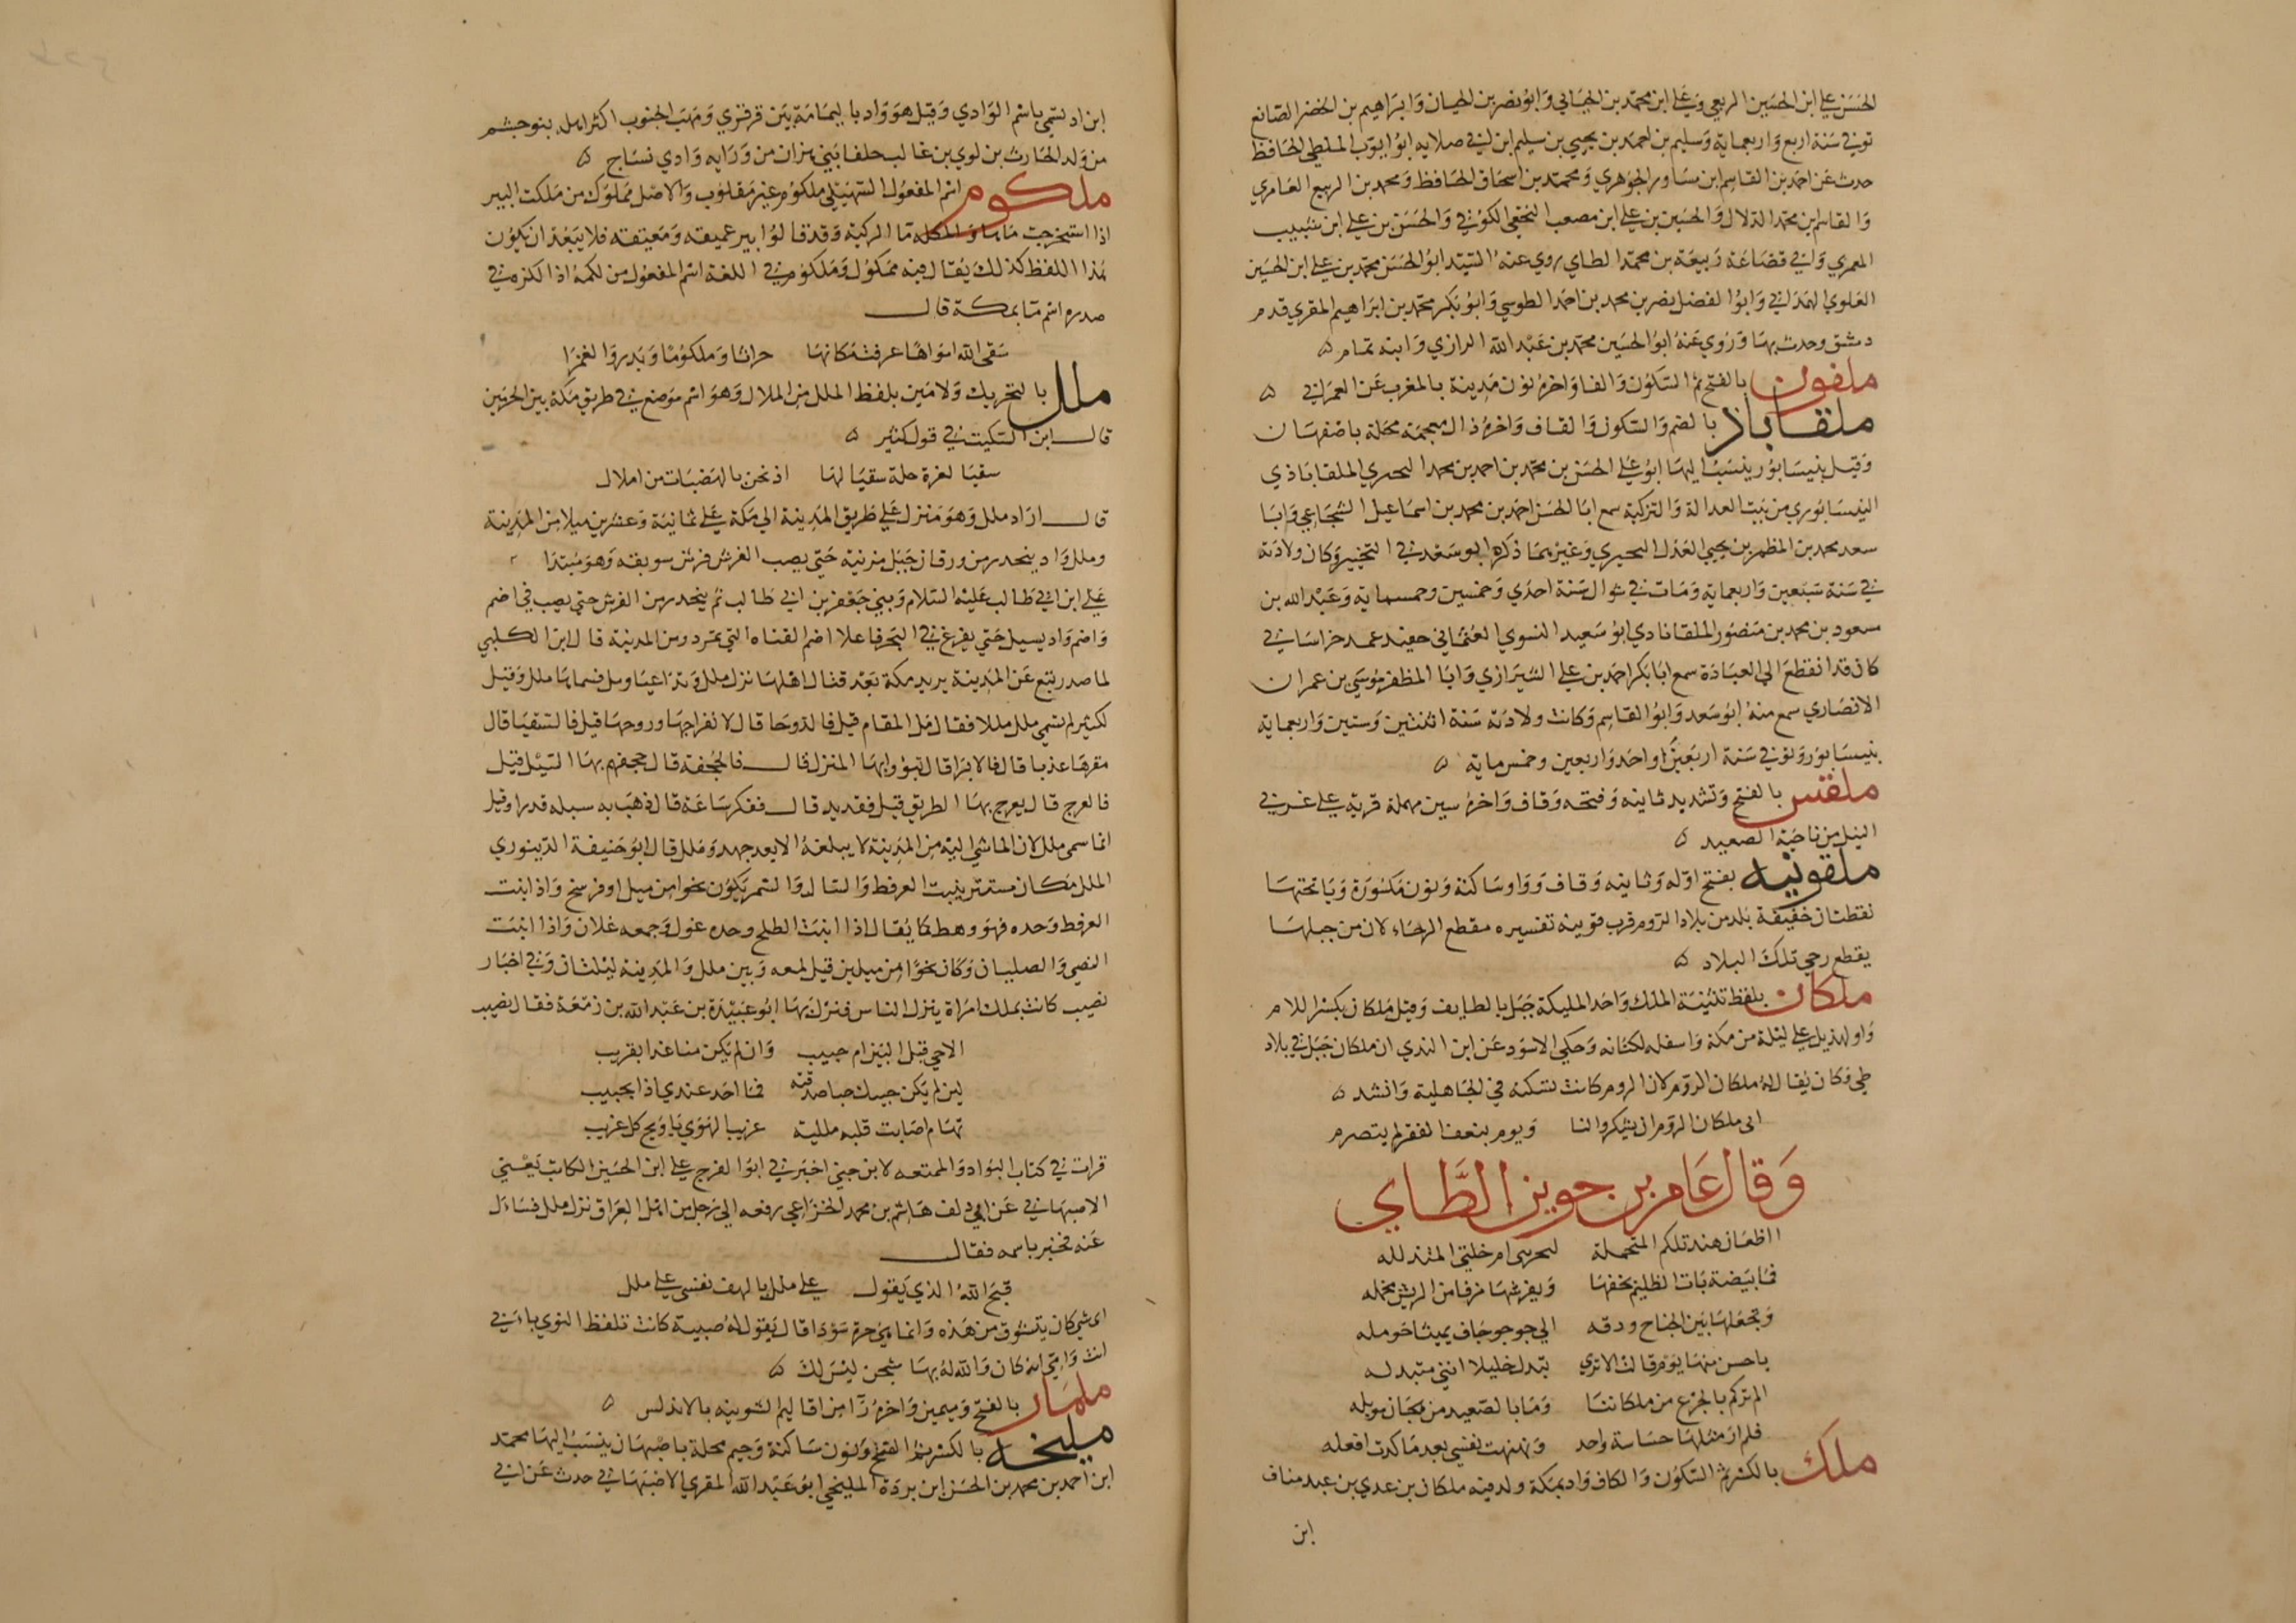 الحسن علي ابن الحسين الربعي وعلي ابن محمد بن الجبائي وابو نصر بن الحبان وابراهيم بن الخضر الصائغ
توفي سنة اربع واربعماية وسليم بن احمد بن يحيى بن سليم ابن ابي صلايه ابو ايوب الملطي الحافظ
حدث عن احمد بن القاسم ابن مساور الجوهري ومحمد بن اسحاق الحافظ ومحمد بن الربيع العامري
والقاسم ابن محمد الدلال والحسين بن علي ابن مصعب النخعي الكوفي والحسن بن علي ابن شبيب
المعمري وابي قضاعة ربيعة بن محمد الطاي روي عنه السيد ابو الحسن محمد بن علي ابن الحسين
العلوي الهمداني وابو الفضل نصر بن محمد بن احمد الطوسي وابو بكر محمد بن ابراهيم المقري قدم
دمشق وحدث بها وروي عنه ابو الحسين محمد بن عبد الله الرازي وابنه تمام ه
ملفون بالفتح ثم السكون والفا واخره نون مدينة بالمغرب عن العمراني ه
ملقاباذ بالضم والسكون والقاف واخره ذال معجمة محلة باصفهان
وقيل بنيسابور ينسب اليها ابو علي الحسن بن محمد بن احمد بن محمد البحيري الملقاباذي
النيسابوري من بيت العدالة والتزكية سمع ابا الحسن احمد بن محمد بن اسماعيل الشجاعي وابا
سعد محمد بن المظفر بن يحيى العدل البحيري وغيرهما ذكره ابو سعد في التحبير وكان ولادته
في سنة سبعين واربعماية ومات في شوال سنة احدي وخمسين وخمسماية وعبد الله بن
مسعود بن محمد بن منصور الملقابادي ابو سعيد النسوي العثماني حفيد عميد خراسان في
كان قد انقطع الى العبادة سمع ابا بكر احمد بن علي الشيرازي وابا المظفر موسي بن عمران
الانصاري سمع منه ابو سعد وابو القاسم وكانت ولادته سنة اثنتين وستين واربعماية
بنيسابور وتوفي سنة اربعين او احد واربعين وخمس ماية ه
ملقس بالفتح وتشديد ثانيه وفتحه وقاف واخره سين مهملة قرية علي غربي
النيل من ناحية الصعيد ه
ملقونيه بفتح اوله وثانيه وقاف وواو ساكنة ونون مكسورة ويا تحتها
نقطتان خفيفة بلد من بلاد الروم قرب قونيه تفسيره مقطع الرحاء لان من جبلها
يقطع رحي تلك البلاد ه
ملكان بلفظ تثنية الملك واحد المليكة جبل بالطايف وقيل ملكان بكسر اللام
واد لهذيل علي ليلة من مكة واسفله لكنانه وحكي الاسود عن ابن الندي ان ملكان جبل في بلاد
طي وكان يقال له ملكان الروم لان الروم كانت تسكنه في الجاهلية وانشد ه
ابى ملكان الروم ان يشكروا لنا ويوم بنعف القفر لم يتصرم
وقال عامر بن جوين الطاي
ااظعان هند تلكم المتحملة لتحزنني ام خلتي المتدلله
فما بيضة بات الظليم يحفها ويفرشها زفا من الريش مخمله
ويجعلها بين الجناح ودفه الي جوجو جاف بميثا حومله
باحسن منها يوم قالت الا تري تبدل خليلا انني متبدله
الم تركم بالجزع من ملكاننا وما بالصعيد من هجان موبله
فلم ار مثلها خباسة واحد ونهنهت نفسي بعد ما كدت افعله
ملك بالكسر ثم السكون والكاف واد بمكة ولد فيه ملكان بن عدي بن عبد مناف
ابن
ابن اد لتسمي باسم الوادي وقيل هو واد باليمامة بين قرقري ومهب الجنوب اكثر اهله بنو جشم
من ولد الحارث بن لوي بن غالب حلفا بني هزان من ورايه وادي نساح ه
ملكوم اسم المفعول السهيلي ملكوم غير مقلوب والاصل مملوك من ملكت البير
اذا استخرجت ماها ما الركية وقد قالوا بير عميقه ومعيقه فلا يبعد ان يكون
هذا اللفظ كذلك يقال فيه ممكول وملكوم في اللغة اسم المفعول من لكمه اذا لكزه في
صدره اسم ما بمكة قال
سقى الله امواها عرفت مكانها جرابا وملكوما وبدر والغمرا
ملل بالتحريك ولامين بلفظ الملل من الملال وهو اسم موضع في طريق مكة بين الحرمين
قال ابن السكيت في قول كثير ه
سقيا لعزة خلة سقيا لها اذ نحن بالهضبات من املال
قال اراد ملل وهو منزل علي طريق المدينة الي مكة علي ثمانية وعشرين ميلا من المدينة
وملل واد ينحدر من ورقان جبل مزينة حتي يصب الفرش فرش سويقه وهو مبتدا
علي ابن ابي طالب عليه السلام وبني جعفر بن ابي طالب ثم ينحدر من الفرش حتي يصب في اضم
واضم واد يسيل حتي يفرغ في البحر فاعلا اضم القناه التي تمر دوين المدينة قال ابن الكلبي
لما صدر تبع عن المدينة يريد مكة بعد قتال اهلها نزل ملل وقد اعيا ومل فسماها ملل وقيل
لكثير لم سمي ملل مللا فقال مل المقام قيل فالروحا قال لانفراجها وروحها قيل فالسقيا قال
مقرها عذبا قال فالابوا قال تبووا بها المنزل قال فالجحفة قال جحفهم بها السيل قيل
فالعرج قال يعرج بها الطريق قيل فقديد قال ففكر ساعة قال ذهب به سيله قددا وقيل
انما سمي ملل لان الماشي اليه من المدينة لا يبلغه الا بعد جهد وملل قال ابو حنيفة الدينوري
الملل مكان مستو ينبت العرفط والسيال والسمر يكون نحوا من ميل او فرسخ واذا انبت
العرفط وحده فهو وهط كما يقال اذا انبت الطلح وحده غول وجمعه غلان واذا انبت
النصي والصليان وكان نحوا من ميلين قيل لمعه وبين ملل والمدينة ليلتان وفي اخبار
نصيب كانت بملل امراة ينزل الناس فنزل بها ابو عبيدة بن عبد الله بن زمعة فقال نصيب
الا حي قبل البين ام حبيب وان لم يكن منا غدا بقريب
لين لم يكن حبيك حبا صدقته فما احد عندي اذا بحبيب
تهام اصابت قلبه مللية غريب الهوي يا ويح كل غريب
قرات في كتاب النوادر الممتعه لابن جني اخبرني ابو الفرج علي ابن الحسين الكاتب يعني
الاصبهاني عن ابي دلف هاشم بن محمد الخزاعي رفعه الي رجل من اهل العراق نزل ملل فسال
عنه فخبر باسمه فقال
قبح الله الذي يقول علي ملل يا لهف نفسي علي ملل
اي شي كان يتشوق من هذه وانما هي حرة سودا قال يقول له صبية كانت تلفظ النوي بابي
انت وامي انه كان والله له بها شجن ليس لك ه
ملمار بالفتح وميمين واخره را من اقاليم اشونيه بالاندلس ه
ملنجه بالكسر ثم الفتح ونون ساكنة وجيم محلة باصبهان ينسب اليها محمد
ابن احمد بن محمد بن الحسن ابن بردة الملنجي ابو عبد الله المقري الاصبهاني حدث عن ابي